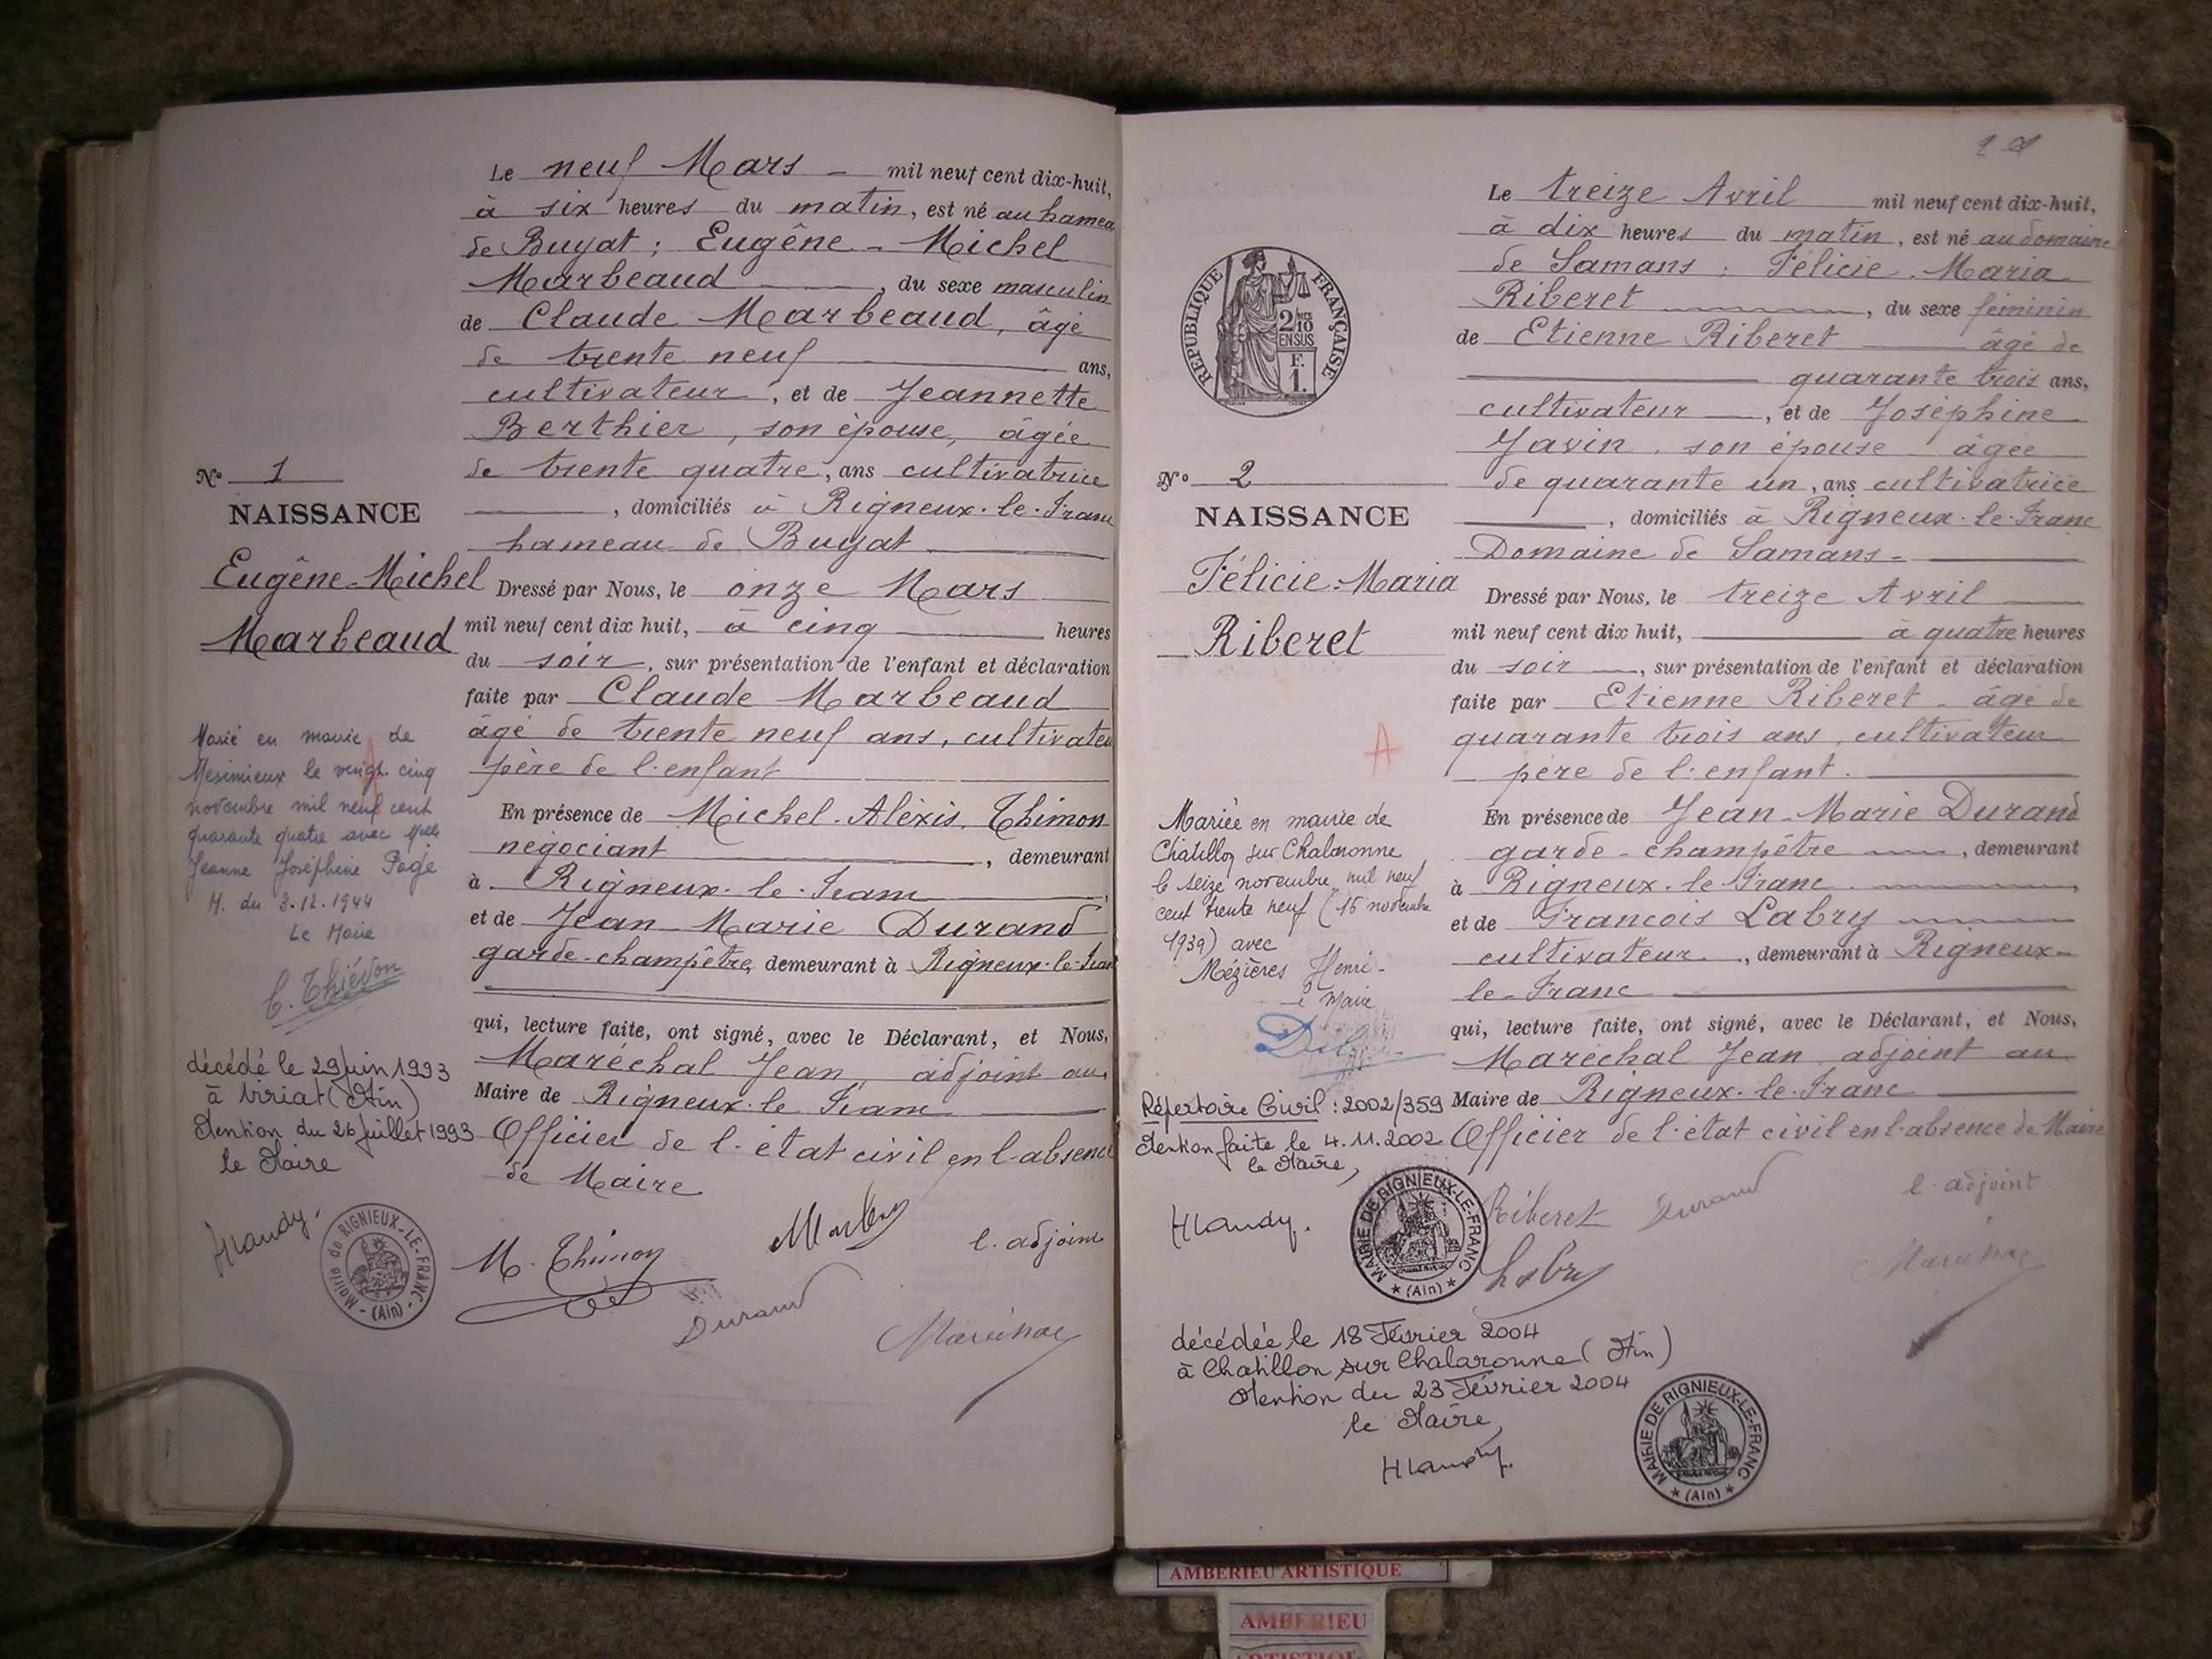 Le neuf Mars - mil neuf cent dix-huit,
à six heures du matin, est né au hamea
de Buyat : Eugêne - Michel
Marbeaud , du sexe masculin
de Claude Marbeaud, âgé
de trente neuf ans,
cultivateur, et de Jeannette
Berthier, son épouse, âgée
de trente quatre, ans cultivatrice
, domiciliés à Rigneux-le-Franc
hameau de Buyat
N° 1
NAISSANCE
Eugêne-Michel
Marbeaud
Dressé par Nous, le onze Mars
mil neuf cent dix huit, à cinq heures
du soir, sur présentation de l'enfant et déclaration
faite par Claude Marbeaud
âgé de trente neuf ans, cultivateu
père de l'enfant
En présence de Michel-Aléxis, Thimon
négociant , demeurant
à Rigneux-le-Franc,
et de Jean Marie Durand
garde-champêtre, demeurant à Rigneux-le-Franc
qui, lecture faite, ont signé, avec le Déclarant, et Nous,
Maréchal Jean, adjoint au
Maire de Rigneux-le Franc
Officier de l'état civil en l'absence
de Maire
Marié en mairie de
Meximieux le vingt cinq
novembre mil neuf cent
quarante quatre avec Melle
Jeanne Joséphine Pagé
M. du 3.12.1944
Le Maire
C. Thiévon
décédé le 29 juin 1993
à Viriat (Ain)
Mention du 26 juillet 1993
le Maire
Mairie de RIGNIEUX-LE-FRANC - (Ain)
M. Thimon
l'adjoint
Durand
Maréchal
Le treize Avril mil neuf cent dix-huit,
à dix heures du matin, est né au domaine
de Samans : Félicie Maria
Riberet , du sexe féminin
de Etienne Riberet âgé de
quarante trois ans,
cultivateur , et de Joséphine
Javin, son épouse âgée
de quarante un, ans cultivatrice
, domiciliés à Rigneux-le-Franc
Domaine de Samans-
REPUBLIQUE FRANÇAISE
2/10
EN SUS
F.
1.
N° 2
NAISSANCE
Félicie-Maria
Riberet
Dressé par Nous, le treize Avril
mil neuf cent dix huit, à quatre heures
du soir , sur présentation de l'enfant et déclaration
faite par Etienne Riberet - âgé de
quarante trois ans, cultivateur
père de l'enfant.
En présence de Jean-Marie Durand
garde-champêtre , demeurant
à Rigneux-le-Franc ,
et de Francois Labry
cultivateur , demeurant à Rigneux-
le-Franc
qui, lecture faite, ont signé, avec le Déclarant, et Nous,
Maréchal Jean adjoint au
Maire de Rigneux-le-Franc
Officier de l'état civil en l'absence de Maire
A
Mariée en mairie de
Chatillon sur Chalaronne
le seize novembre mil neuf
cent trente neuf (16 novembre
1939) avec
Mézières Henri-
Maire
Répertoire Civil : 2002/359
Mention faite le 4.11.2002
le Maire,
MAIRIE DE RIGNIEUX-LE-FRANC * (Ain) *
Riberet
Durand
l'adjoint
Labry
Maréchal
décédée le 18 Février 2004
à Chatillon sur Chalaronne (Ain)
Mention du 23 Février 2004
le Maire,
MAIRIE DE RIGNIEUX-LE-FRANC * (Ain) *
AMBERIEU ARTISTIQUE
AMBERIEU
ARTISTIQUE